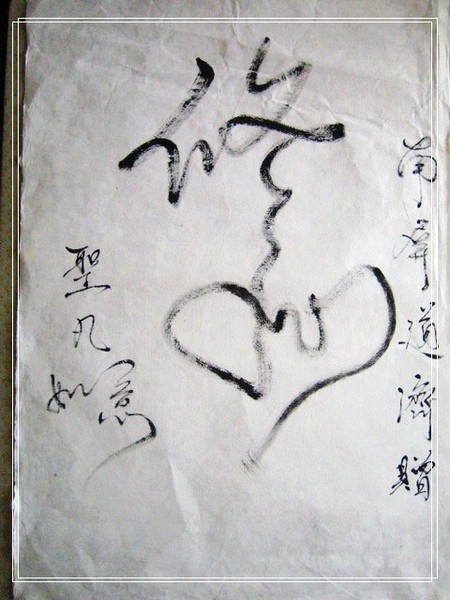 南屏道濟贈
修
聖凡如意